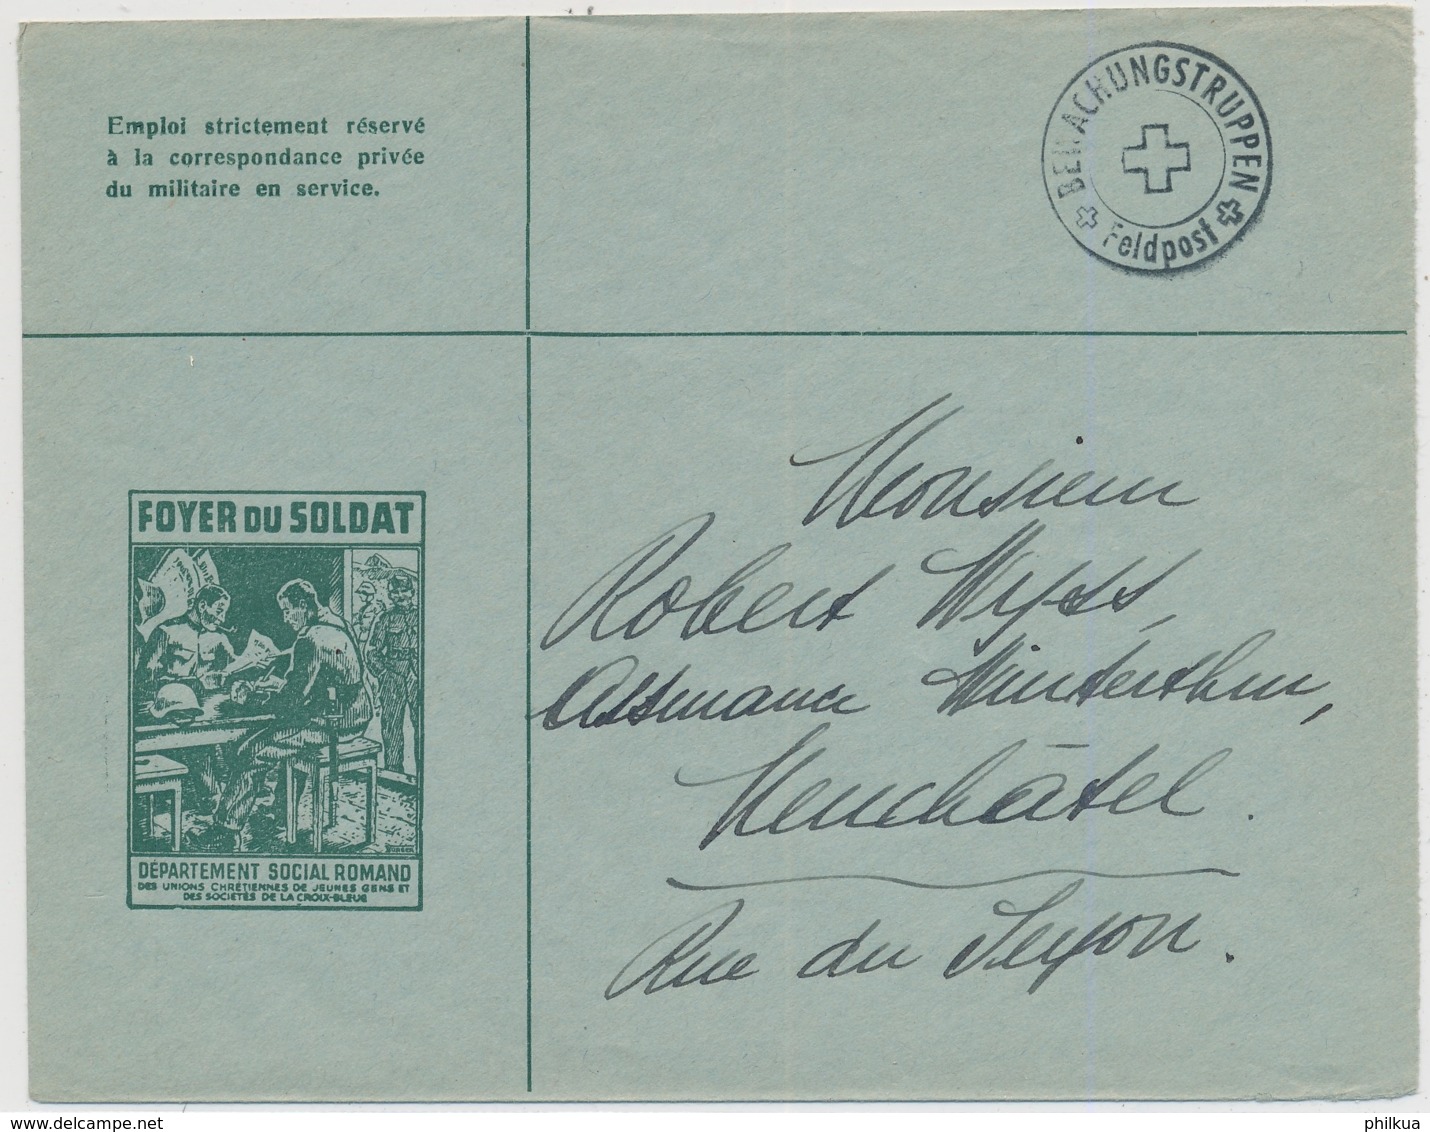 Emploi strictement réservé
à la correspondance privée
du militaire en service.
BEWACHUNGSTRUPPEN
Feldpost
FOYER DU SOLDAT
DÉPARTEMENT SOCIAL ROMAND
DES UNIONS CHRÉTIENNES DE JEUNES GENS ET
DES SOCIÉTÉS DE LA CROIX-BLEUE
Monsieur
Robert Wyss,
Winterthur,
Neuchâtel.
Rue du Seyon.
www.delcampe.net
philkua